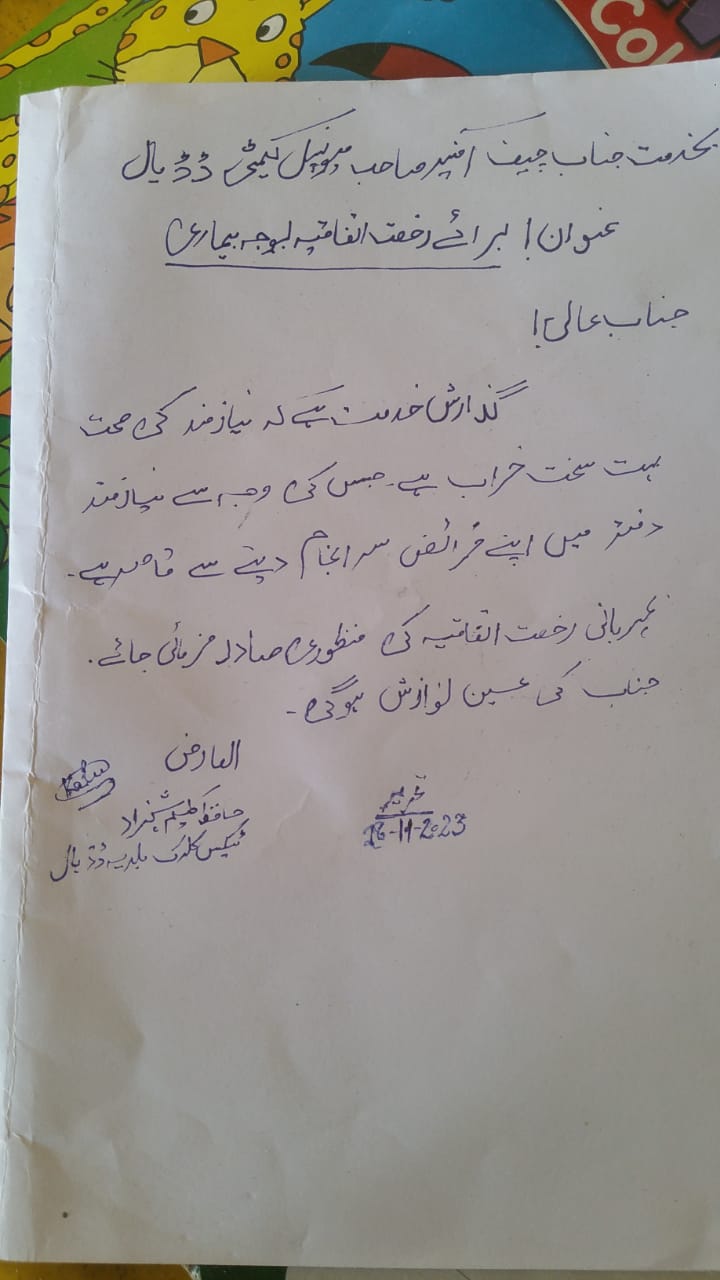 Col
بخدمت جناب چیف آفیسر صاحب میونسپل کمیٹی ڈڈیال
عنوان! برائے رخصت اتفاقیہ بوجہ بیماری
جناب عالی!
گذارش خدمت ہے کہ نیازمند کی صحت
بہت سخت خراب ہے۔ جس کی وجہ سے نیازمند
دفتر میں اپنے فرائض سرانجام دینے سے قاصر ہے۔
مہربانی رخصت اتفاقیہ کی منظوری صادر فرمائی جائے۔
جناب کی عین نوازش ہوگی۔
العارض
حافظ شہزاد
ٹیکس کلرک بلدیہ ڈڈیال
تحریر
-11-2023